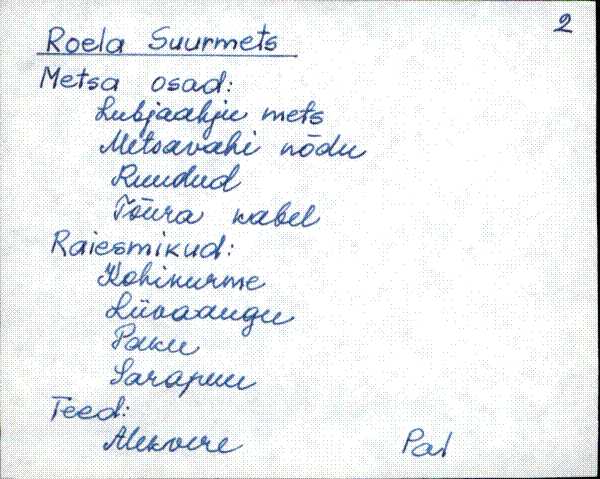 2
Roela Suurmets
Metsa osad:
Lubjaahju mets
Metsavahi nõdu
Ruudud
Tõura kabel
Raiesmikud:
Kohinurme
Liivaaugu
Paku
Sarapuu
Teed:
Alekvere Pal